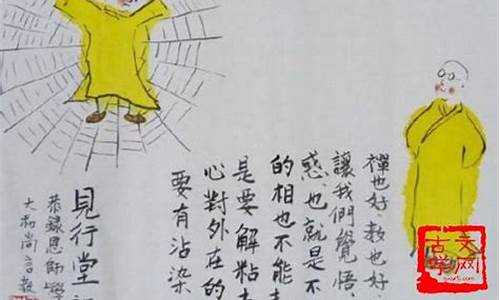 禪也好、教也好、
讓我們覺悟、
惑、也就是不
的相也不能
是要解粘去
心對外在的
要有沾染
見行堂
恭錄恩師
大和尚
古文学网